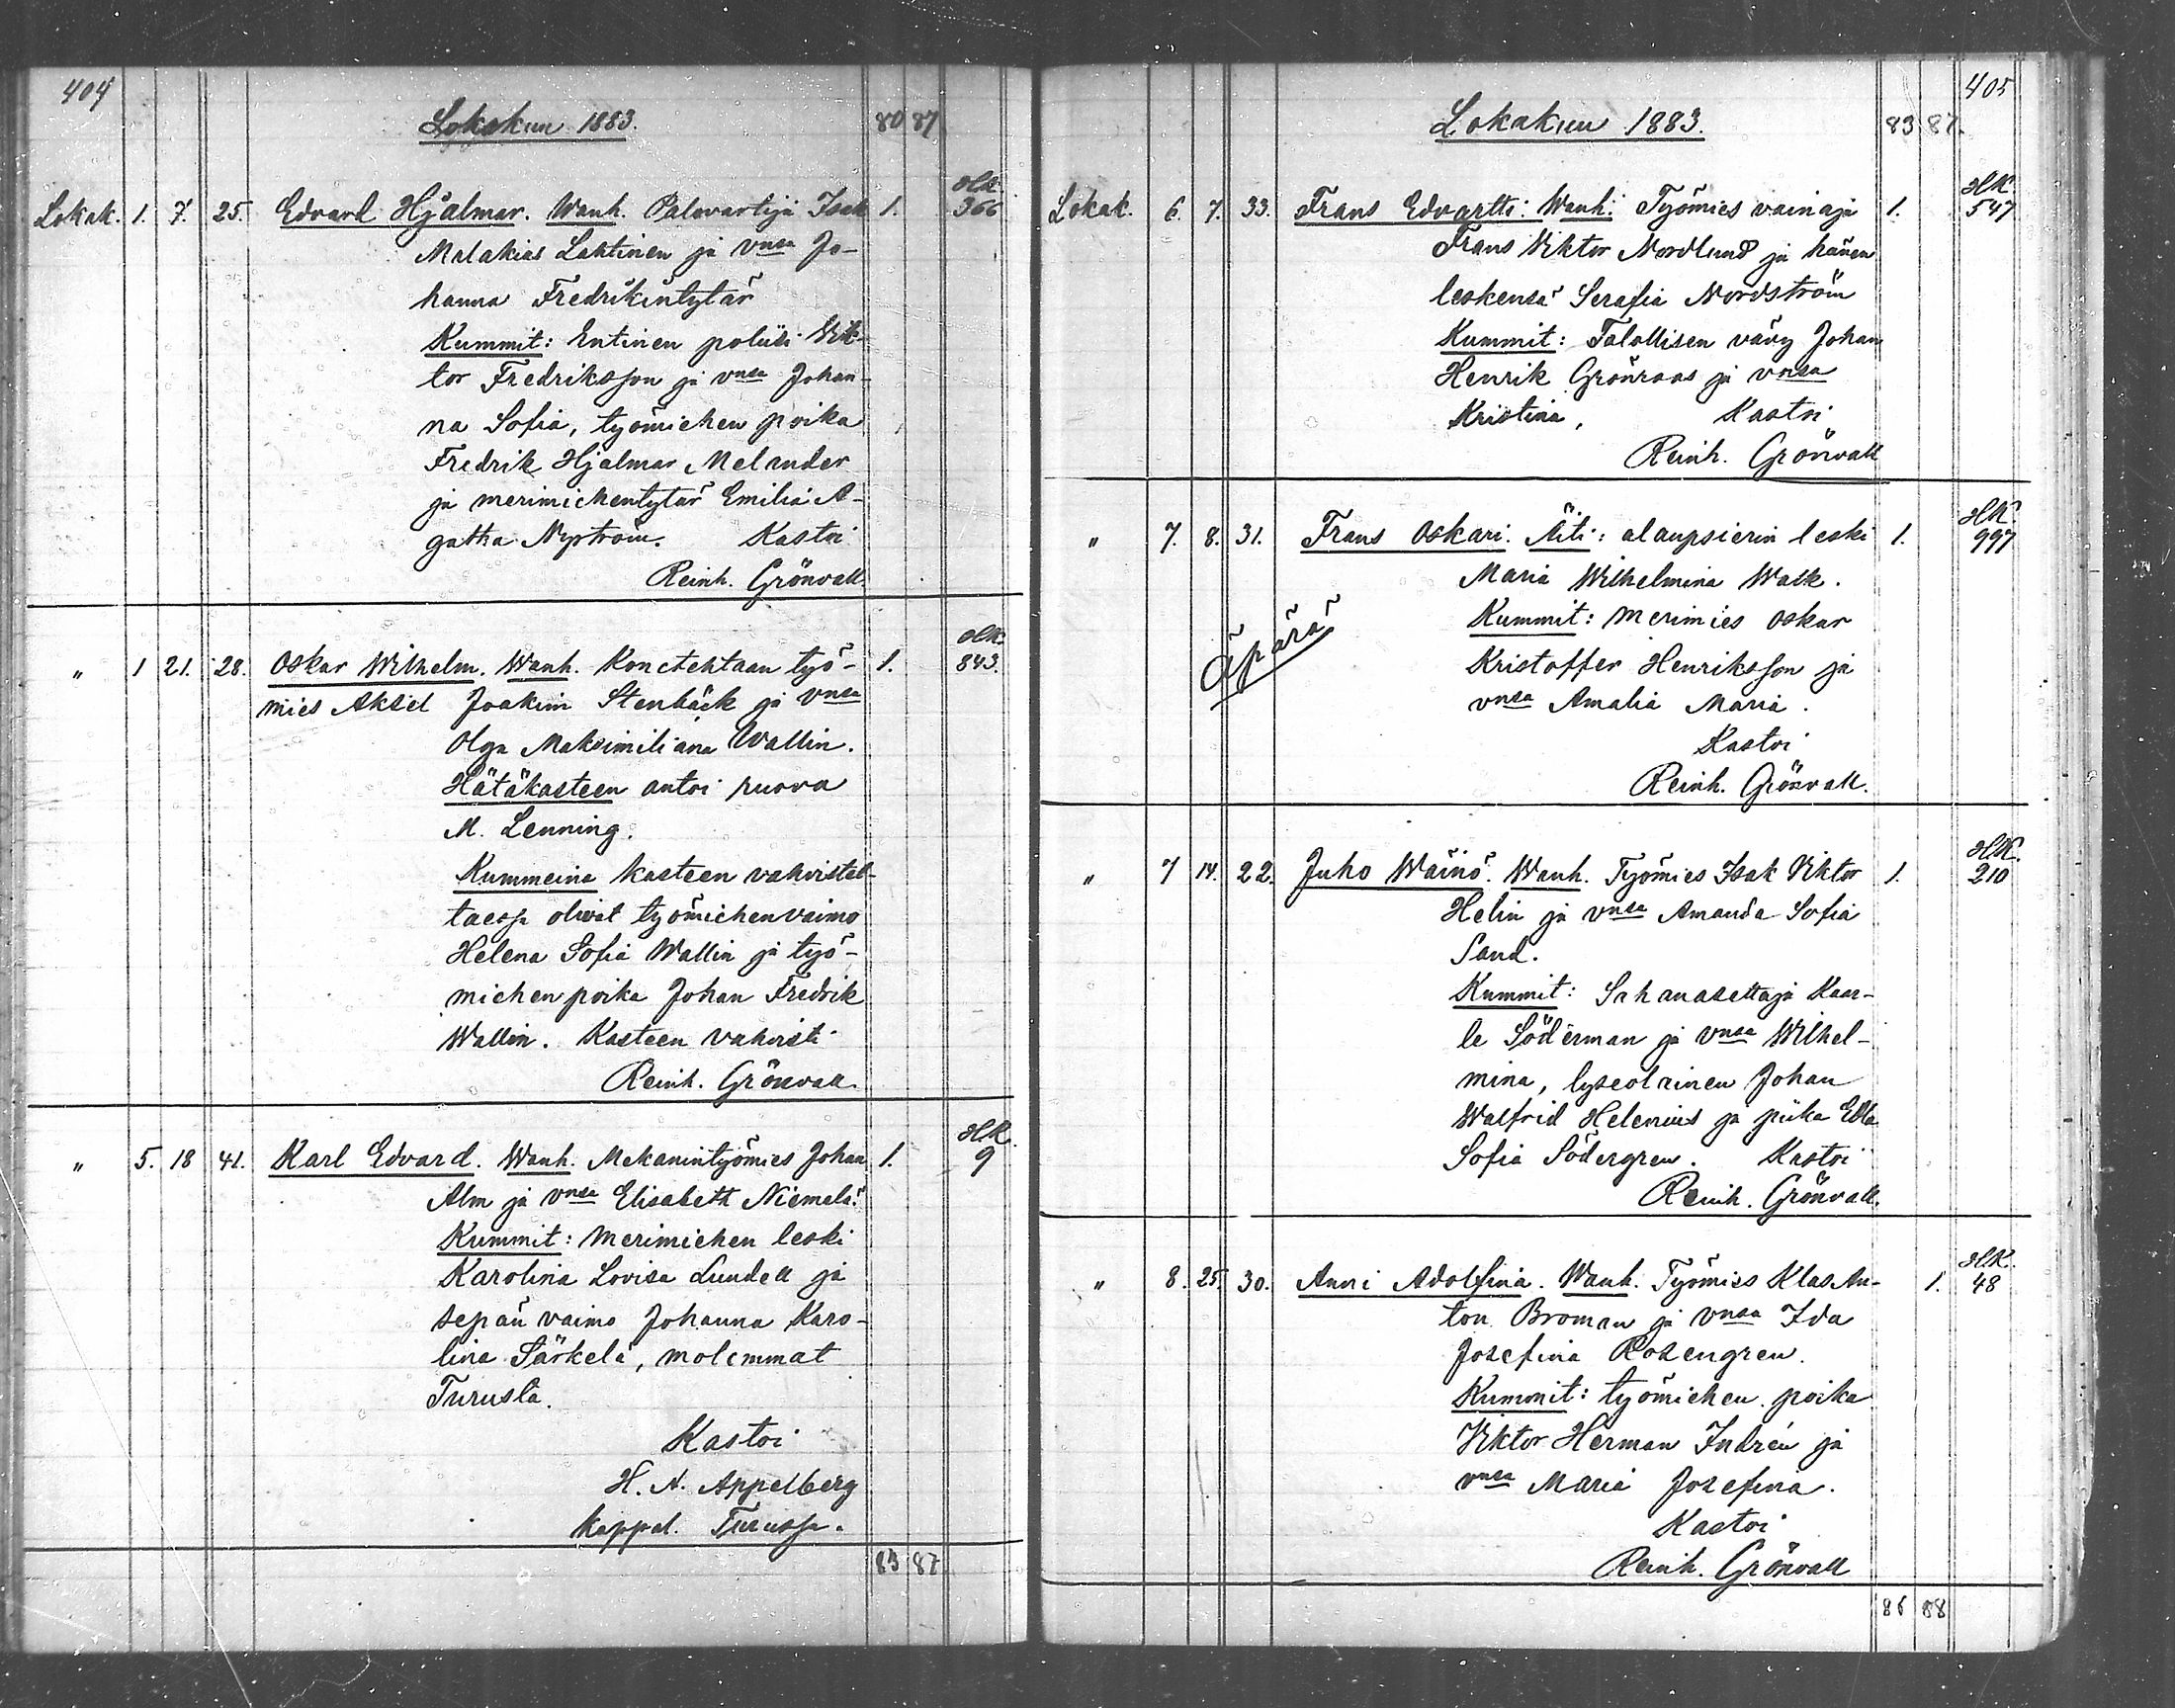 404
Lokakuu 1883.
80 87
Lokak. 1. 7. 25. Edvard Hjalmar. Wanh. Palovartija Isak 1. HK. 366
Malakias Lahtinen ja vnsa Jo-
hanna Fredrikintytär
Kummit: Entinen poliisi Vik-
tor Fredriksson ja vnsa Johan-
na Sofia, työmiehen poika
Fredrik Hjalmar Melander
ja merimiehentytär Emilia A-
gatha Nyström. Kastoi
Reinh. Grönvall.
" 1 21. 28. Oskar Wilhelm. Wanh. Konetehtaan työ- 1. HK. 843.
mies Aksel Joakim Stenbäck ja vnsa
Olga Maksimiliana Wallin.
Hätäkasteen antoi rouva
M. Lenning.
Kummeina kasteen vahvistet-
taessa olivat työmiehenvaimo
Helena Sofia Wallin ja työ-
miehen poika Johan Fredrik
Wallin. Kasteen vahvisti
Reinh. Grönvall.
" 5. 18 41. Karl Edvard. Wanh. Mekanintyömies Johan 1. HK. 9
Alm ja vnsa Elisabeth Niemelä.
Kummit: merimiehen leski
Karolina Lovisa Lundell ja
sepän vaimo Johanna Karo-
lina Särkelä, molemmat
Turusta.
Kastoi
H. A. Appelberg
kappal. Turussa.
83 87
405
Lokakuu 1883.
83 87.
Lokak. 6. 7. 33. Frans Edvartti. Wanh. Työmies vainaja 1. HK. 547
Frans Viktor Nordlund ja hänen
leskensä Serafia Nordström
Kummit: Talollisen vävy Johan
Henrik Grönroos ja vnsa
Kristina, Kastoi
Reinh. Grönvall
" 7. 8. 31. Frans Oskari. Äiti: alaupsierin leski 1. HK. 997
Maria Wilhelmina Walk.
Äpärä
Kummit: merimies Oskar
Kristoffer Henriksson ja
vnsa Amalia Maria.
Kastoi
Reinh. Grönvall.
" 7 14. 22. Juho Wäinö. Wanh. Työmies Isak Viktor 1. HK. 210
Helin ja vnsa Amanda Sofia
Sand.
Kummit: Sahanasettaja Kaar-
le Söderman ja vnsa Wilhel-
mina, lyseolainen Johan
Walfrid Helenius ja piika Edla
Sofia Södergren. Kastoi
Reinh. Grönvall.
" 8. 25. 30. Anni Adolfina. Wanh. Työmies Klas An- 1. HK. 48
ton Broman ja vnsa Ida
Josefina Rosengren.
Kummit: työmiehen poika
Viktor Herman Indrén ja
vnsa Maria Josefina.
Kastoi
Reinh. Grönvall
86 88